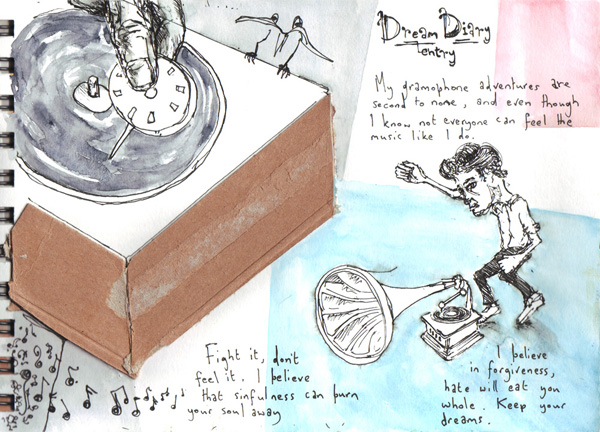 Dream Diary
entry
My gramophone adventures are
second to none, and even though
I know not everyone can feel the
music like I do.
Fight it, don't
feel it. I believe
that sinfulness can burn
your soul away
I believe
in forgiveness,
hate will eat you
whole. Keep your
dreams.